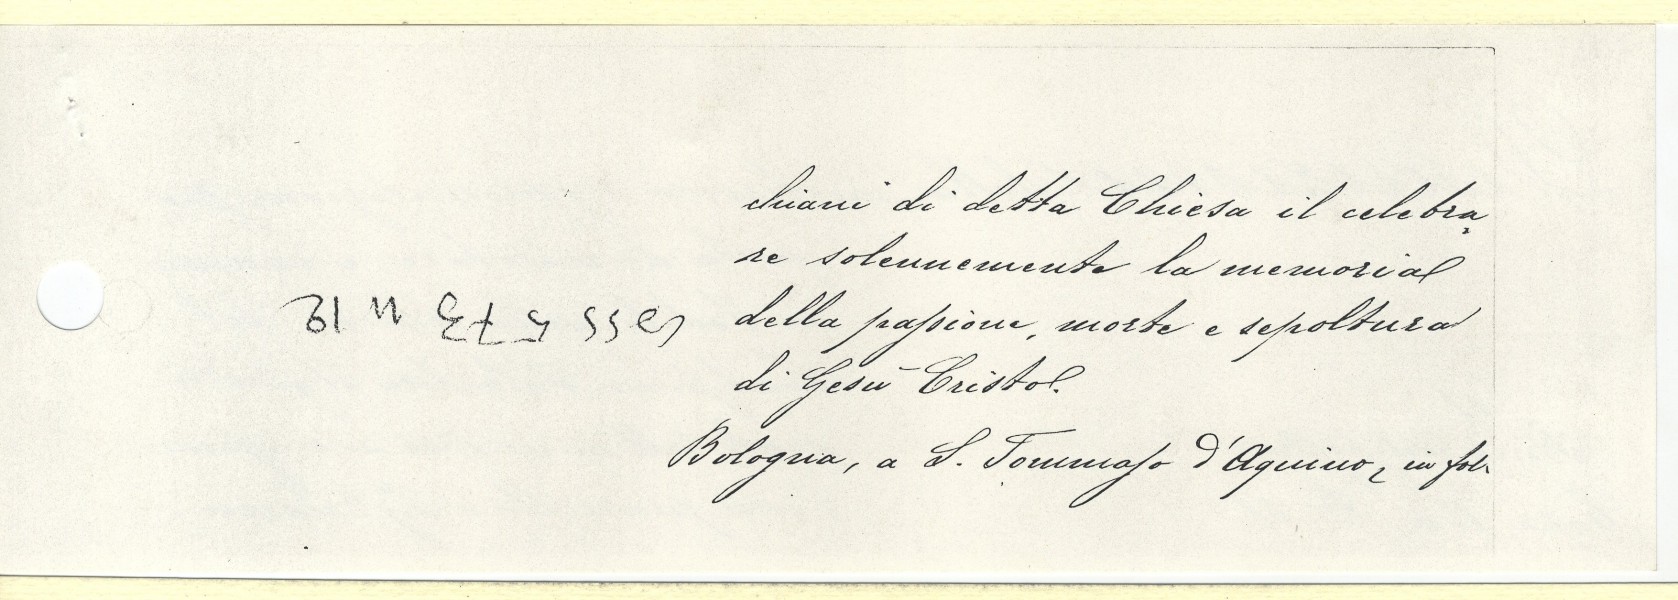 chiani di detta Chiesa il celebra
re solennemente la memoria
della passione, morte e sepoltura
di Gesù Cristo.
Bologna, a S. Tommaso d'Aquino, in fol.